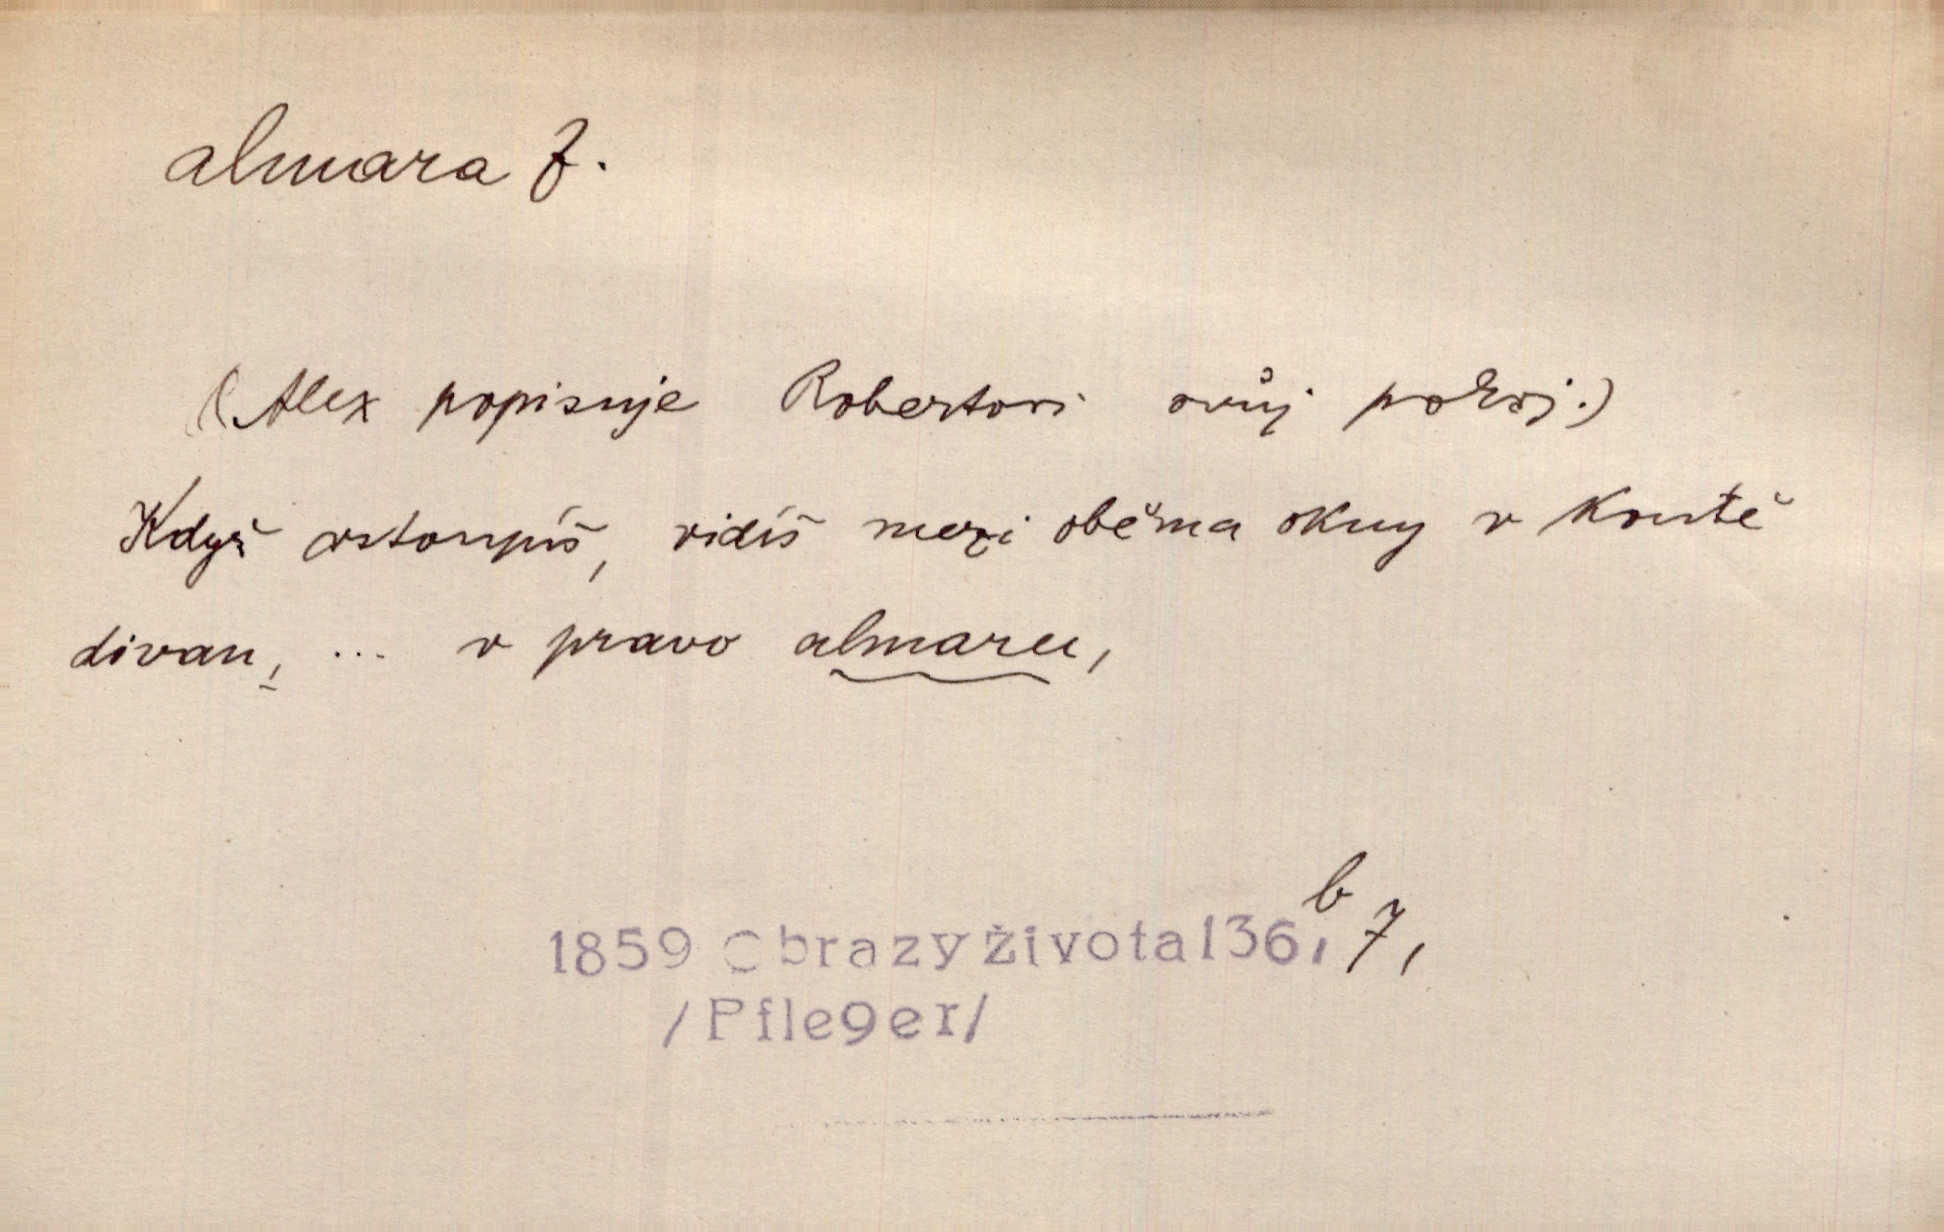 almara f.
(Alex popisuje Robertovi svůj pokoj.)
Když vstoupíš, vidíš mezi oběma okny v koutě
divan, ... v pravo almaru,
1859 Obrazy života 136, b 7,
/Pfleger/